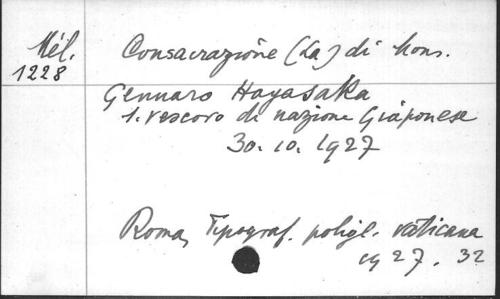 Mél.
1228
Consacrazione (La) di Mons.
Gennaro Hayasaka
1. vescovo di nazione Giaponese
30. 10. 1927
Roma, Tipograf. poligl. vaticana
1927. 32